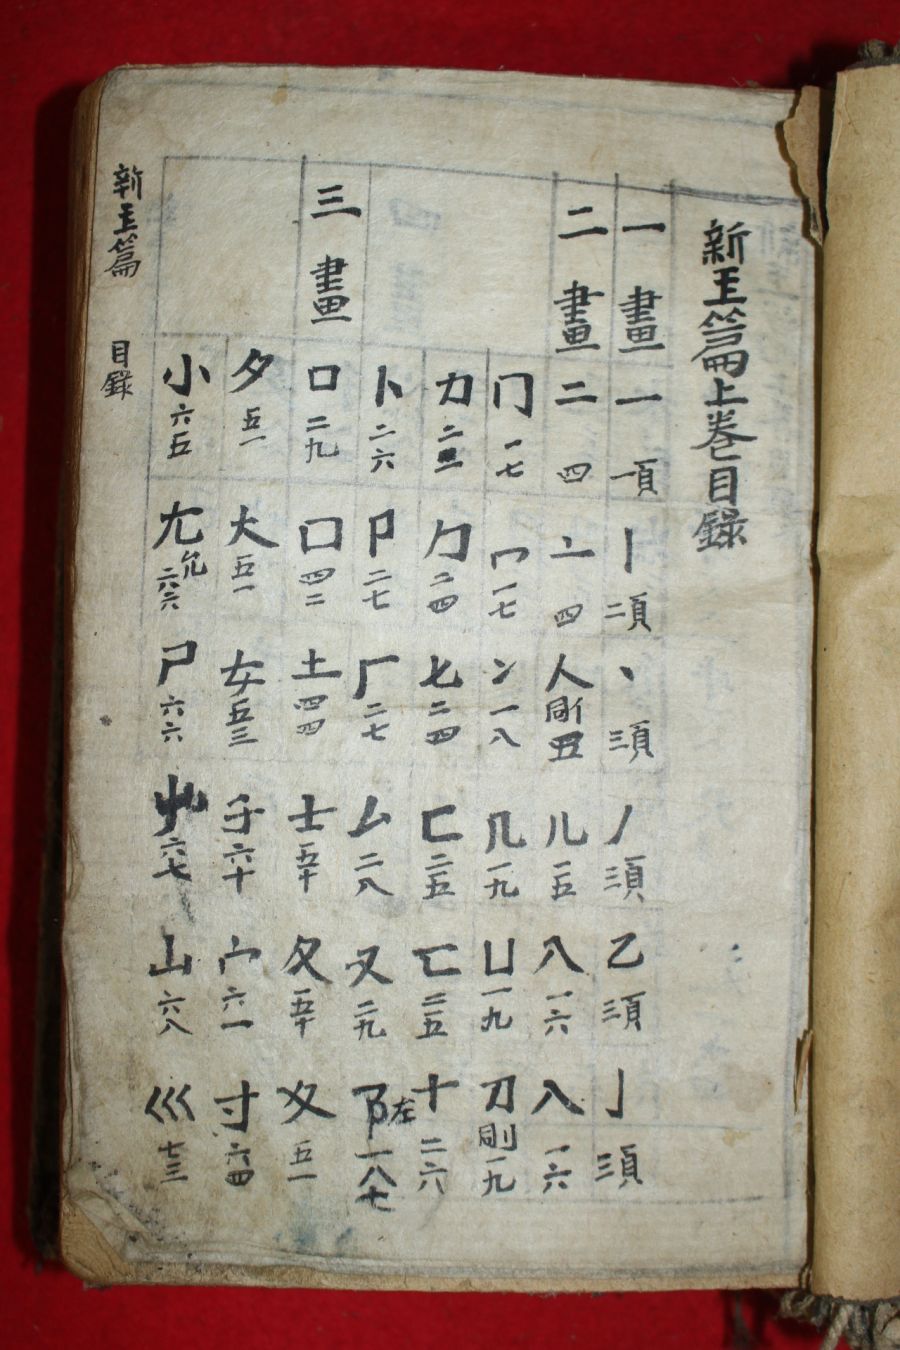 新玉篇上卷目錄
一畫 一 一頁 丨 二頁 丶 三頁 丿 三頁 乙 三頁 亅 三頁
二畫 二 四 亠 四 人 五 儿 一五 入 一六 八 一六
冂 一七 冖 一七 冫 一八 几 一九 凵 一九 刀 一九
力 勹 二四 匕 二四 匚 二五 匸 二五 十 二六
卜 二六 卩 二七 厂 二七 厶 二八 又 二九 阝左 一八七
三畫 口 二九 囗 四二 土 四四 士 五十 夂 五十 夊 五一
夕 五一 大 五一 女 五三 子 六十 宀 六一 寸 六四
小 六五 尢 允 六六 尸 六六 屮 六七 山 六八 巛 七三
新玉篇 目錄